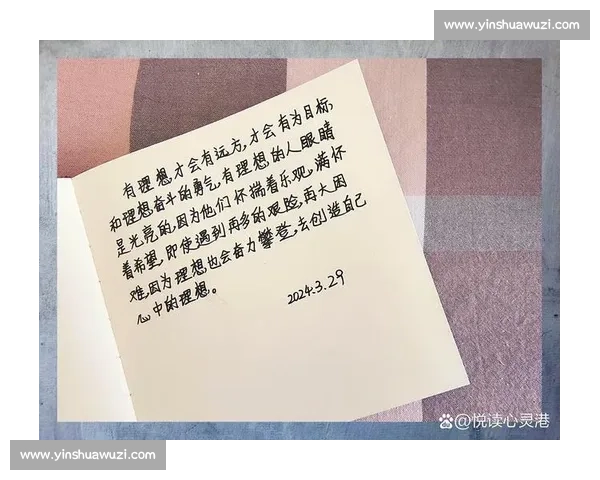 www.yinshuawuzi.com
有理想,才会有远方,才会有为目标,
和理想奋斗的勇气,有理想的人眼睛
是光亮的,因为他们怀揣着乐观,满怀
着希望,即使遇到再多的艰险,再大困
难,因为理想也会奋力攀登,去创造自己
心中的理想。
2024.3.29
@悦读心灵港
www.yinshuawuzi.com